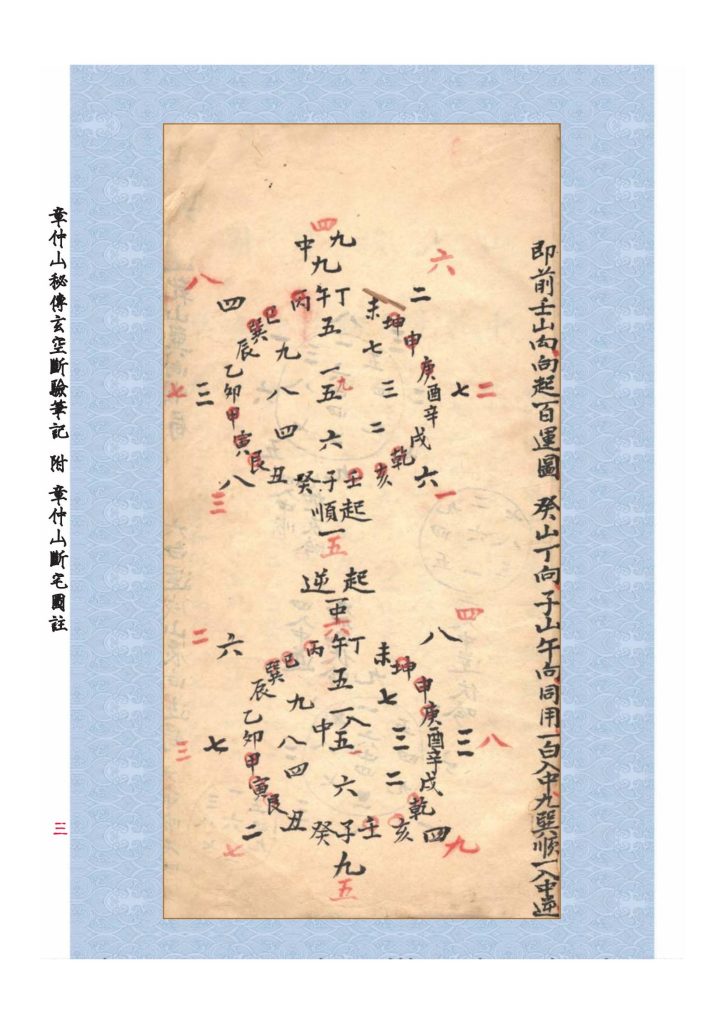 即前壬山丙向起百運圖 癸山丁向子山午向同用一白入中九巽順一入中逆
四
中九
九
六
八
四 巳丙午丁未坤 二
巽 五 申
辰 九 七 庚
七 三 乙 八 一五九 三 酉 七 二
卯 四 六 二 辛
甲 戌
寅 乾
八 艮丑癸子壬亥 六
三 順起 一
一
五
逆起
中
六
四
二 六 巳丙午丁未坤 八
巽 五 申
辰 九 七 庚
三 七 乙 八 中一入五 三 酉 三 八
卯 四 六 二 辛
甲 戌
寅 乾
二 艮丑癸子壬亥 四
七 九 九
五
章仲山秘傳玄空斷驗筆記 附 章仲山斷宅圖註
三